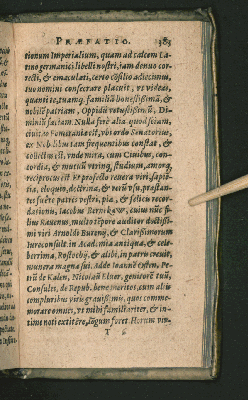 PRÆFATIO. 383
tionum Imperialium, quam ad calcem La-
tino germanici libelli nostri, iam denuo cor-
recti, & emaculati, certo cõsilio adiecimus,
tuo nomini consecrare placuit, vt videas,
quanti te, tuamq. familiã honestißimã, &
nobilẽ patriam, Oppidi vetustißimũ, Di-
miniũ faciam. Nulla ferè alia quod sciam,
ciuitas Pomeraniæ est, vbi ordo Senatorius,
ex Nobilibus tam frequentibus constat, &
collectim est, vnde mira, cum Ciuibus, con-
cordia, & mutuũ virinq. studium, amorq.
reciprocus est Et profectò reuera viri, sapiẽ-
tia, eloquio, doctrina, & rerũ vsu, præstan-
tes fuere patres vestri, pia, & felicis recor-
dationis, Iacobus
mus Rauenus, multo tempore auditor doctissi-
mi viri Arnoldo Burenij, & Clarißimorum
Iureconsult. in Academia antiqua, & cele-
berrima, Rostochij, & alibi, in patria creuit,
munera magnæ sui. Adde Ioannẽ
trũ de Kalen, Nicolaũ Eluer, genitorẽ tuũ,
Consules, de Repub. bene meritos, cum alijs
compluribus viris grauißimis, quos comme-
morare omitto, vt mihi familiariter, & in-
time noti extitere, longum foret Horum vir-
T 6